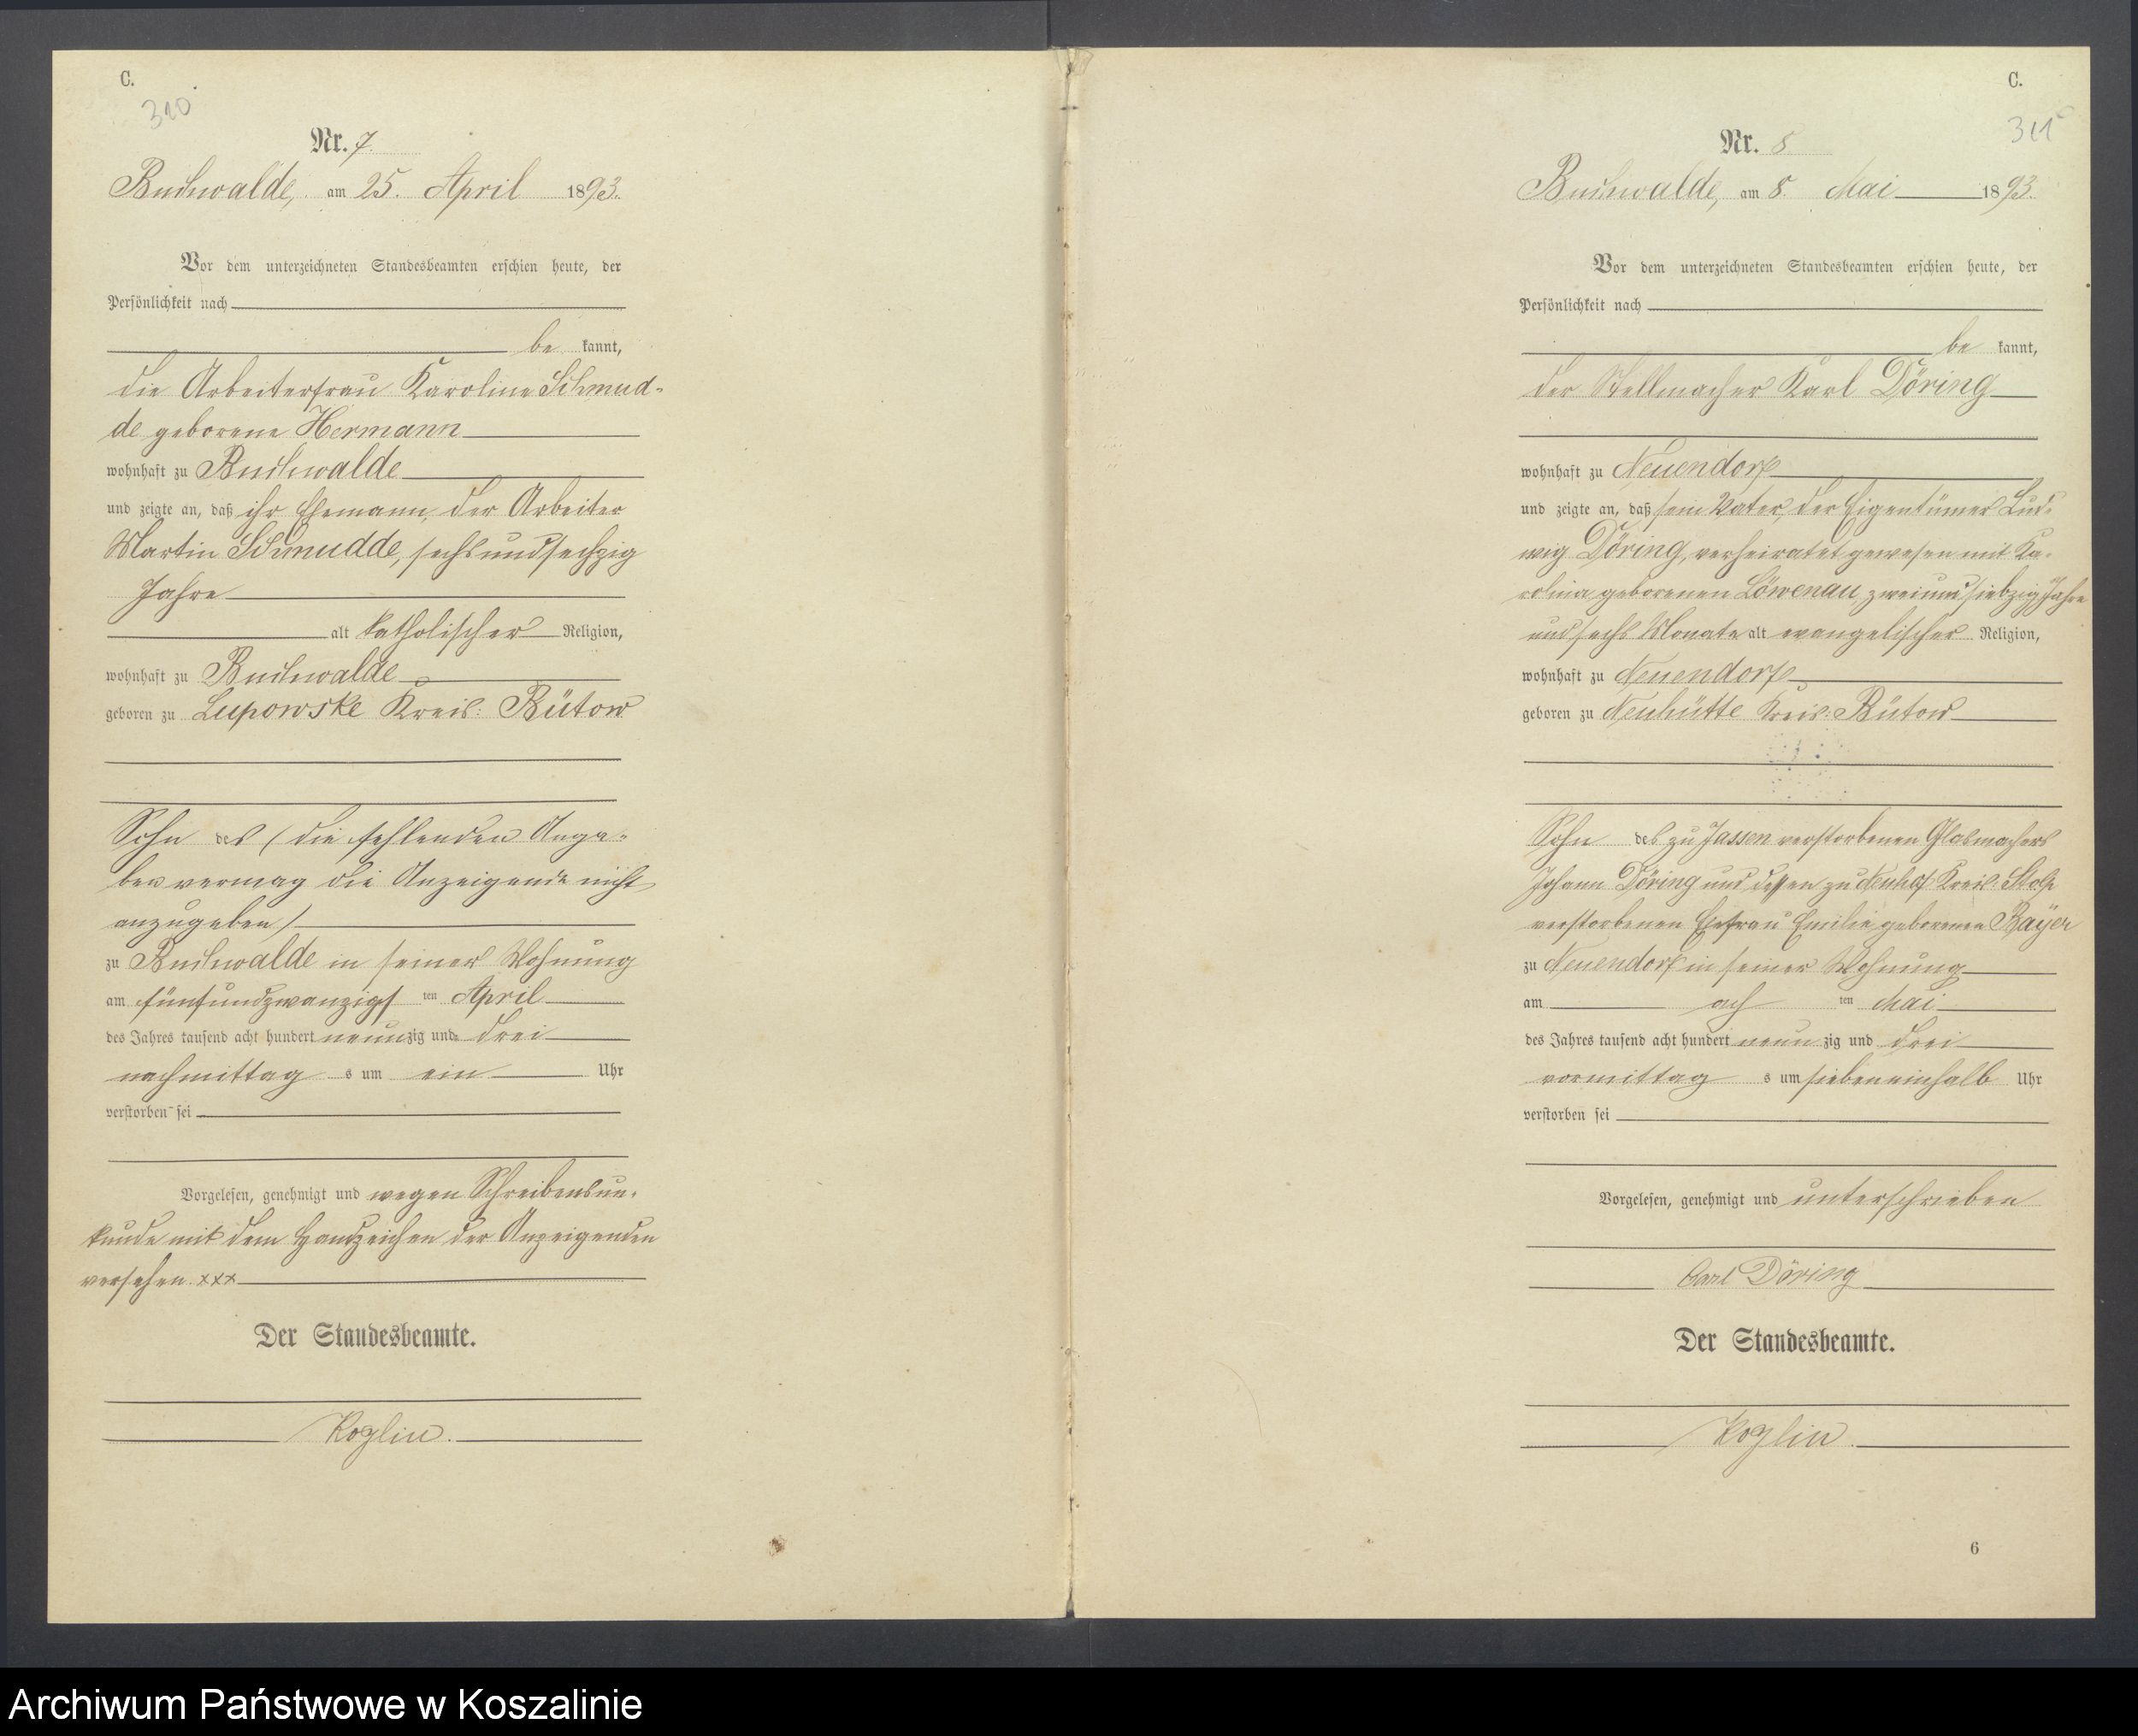 C.
310
Nr. 7.
Buchwalde, am 25. April 1893.
Vor dem unterzeichneten Standesbeamten erschien heute, der
Persönlichkeit nach
be kannt,
die Arbeiterfrau Karoline Schmud-
de geborene Hermann
wohnhaft zu Buchwalde
und zeigte an, daß ihr Ehemann, der Arbeiter
Martin Schmudde, sechsundsechzig
Jahre
alt katholischer Religion,
wohnhaft zu Buchwalde
geboren zu Lupowske Kreis: Bütow
Sohn des (die fehlenden Anga-
ben vermag die Anzeigende nicht
anzugeben)
zu Buchwalde in seiner Wohnung
am fünfundzwanzigs ten April
des Jahres tausend acht hundert neunzig und drei
nachmittag s um ein Uhr
verstorben sei
Vorgelesen, genehmigt und wegen Schreibensun-
kunde mit dem Handzeichen der Anzeigenden
versehen xxx
Der Standesbeamte.
Koglin.
C.
311
Nr. 8
Buchwalde, am 8. Mai 1893.
Vor dem unterzeichneten Standesbeamten erschien heute, der
Persönlichkeit nach
be kannt,
der Stellmacher Karl Döring
wohnhaft zu Neuendorf
und zeigte an, daß sein Vater, der Eigentümer Lud-
wig Döring, verheiratet gewesen mit Ka-
rolina geborenen Löwenau, zweiundsiebzig Jahre
und sechs Monate alt evangelischer Religion,
wohnhaft zu Neuendorf
geboren zu Neuhütte Kreis: Bütow
Sohn des zu Jassen verstorbenen Glasmachers
Johann Döring und dessen zu Neuhof Kreis: Stolp
verstorbenen Ehefrau Emilie geborenen Bayer
zu Neuendorf in seiner Wohnung
am ach ten Mai
des Jahres tausend acht hundert neun zig und drei
vormittag s um siebeneinhalb Uhr
verstorben sei
Vorgelesen, genehmigt und unterschrieben
Carl Döring
Der Standesbeamte.
Koglin.
6
Archiwum Państwowe w Koszalinie